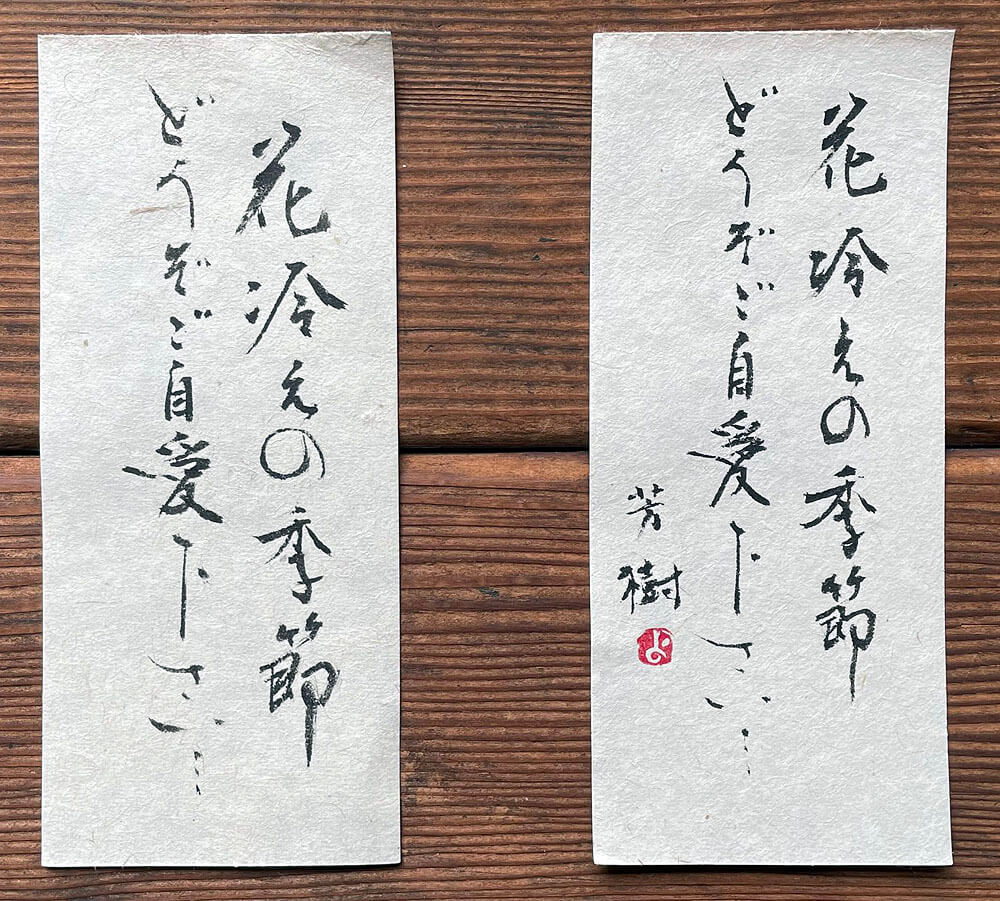 花冷えの季節
どうぞご自愛下さい…
花冷えの季節
どうぞご自愛下さい…
芳樹
よ